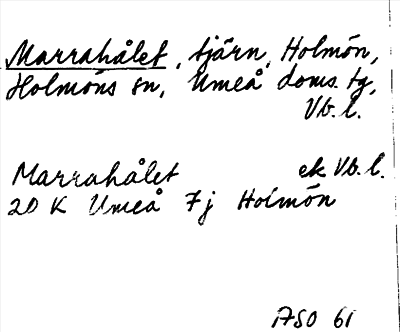 Marrahålet, tjärn, Holmön,
Holmöns sn, Umeå doms. tg,
Vb. l.
Marrahålet ek Vb. l.
20 K Umeå 7j Holmön
ASO 61